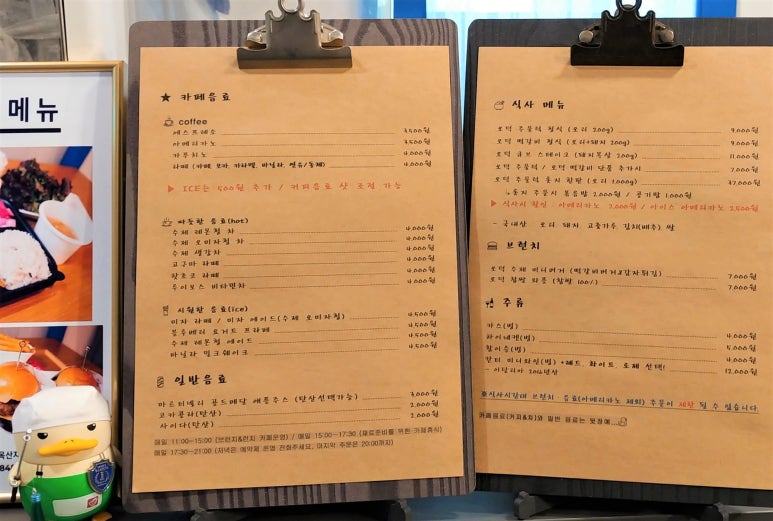 메뉴
★ 카페음료
coffee
에스프레소 3,500원
아메리카노 3,500원
카푸치노 4,000원
라떼 (카페, 모카, 카라멜, 바닐라, 연유/돌체) 4,000원
▶ ICE는 500원 추가 / 커피음료 샷 조절 가능
따듯한 음료(hot)
수제 레몬청 차 4,000원
수제 오미자청 차 4,000원
수제 생강차 4,000원
고구마 라떼 4,000원
핫초코 라떼 4,000원
루이보스 비타민차 4,000원
시원한 음료(ice)
미자 라떼 / 미자 에이드(수제 오미자청) 4,500원
블루베리 요거트 프라페 4,500원
수제 레몬청 에이드 4,500원
바닐라 밀크쉐이크 4,500원
일반음료
마르티넬리 골드메달 애플주스 (탄산선택가능) 3,000원
코카콜라(탄산) 2,000원
사이다(탄산) 2,000원
매일 11:00~15:00 (브런치&런치 카페운영) / 매일 15:00~17:30 (재료준비를 위한 카페휴식)
매일 17:30~21:00 (저녁은 예약제 운영 전화주세요, 마지막 주문은 20:00까지)
식사 메뉴
오덕 주물럭 정식 (오리 200g) 9,000원
오덕 떡갈비 정식 (오리+돼지 200g) 9,000원
오덕 큐브 스테이크 (돼지목살 200g) 11,000원
오덕 주물럭 / 오덕 떡갈비 단품 추가시 7,000원
오덕 주물럭 통지 한판 (오리 1,000g) 37,000원
주문시 볶음밥 2,000원 / 공기밥 1,000원
▶ 식사시 할인 : 아메리카노 2,000원 / 아이스 아메리카노 2,500원
- 국내산 : 오리, 돼지, 고춧가루, 김치(배추), 쌀
브런치
오덕 수제 미니버거 (떡갈비버거&감자튀김) 7,000원
오덕 찹쌀 와플 (찹쌀 100%) 7,000원
주류
카스(병) 4,000원
하이네켄(병) 5,000원
참이슬(병) 4,000원
칼터 미니와인(병) *레드, 화이트, 로제 선택! 12,000원
- 이탈리아 2016년산
※식사시간대 브런치, 음료(아메리카노 제외) 주문이 제한 될 수 있습니다.
카페음료(커피&차)와 일반 음료는 뒷장에...